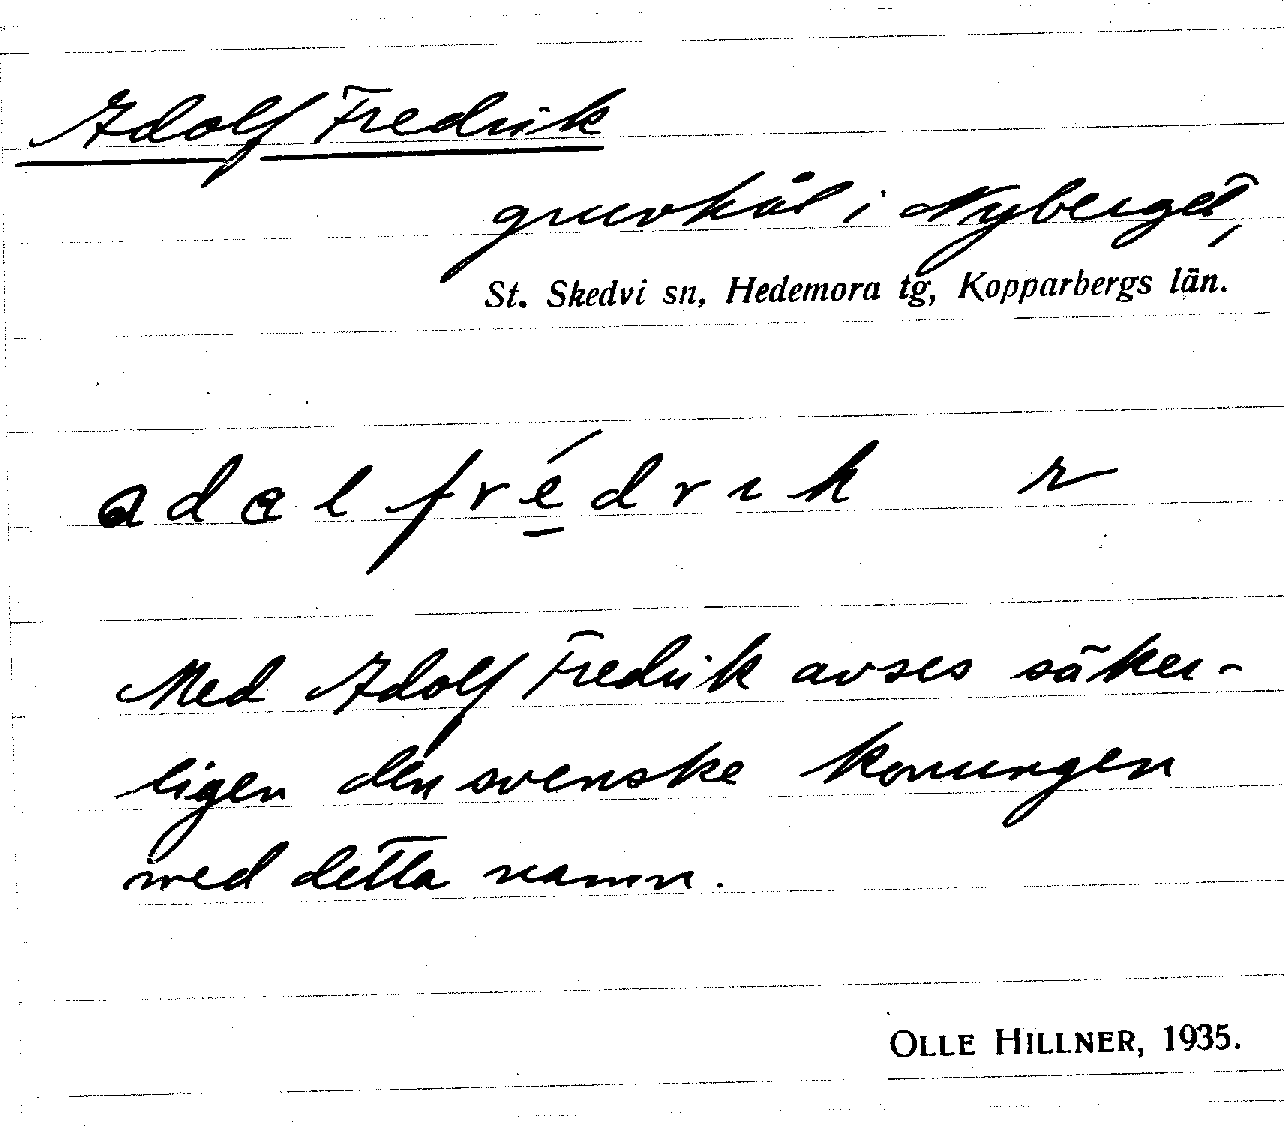 Adolf Fredrik
gruvhål i Nyberget,
St. Skedvi sn, Hedemora tg, Kopparbergs län.
adɑlfrédrɩk n
Med Adolf Fredrik avses säker-
ligen den svenske konungen
med detta namn.
OLLE HILLNER, 1935.